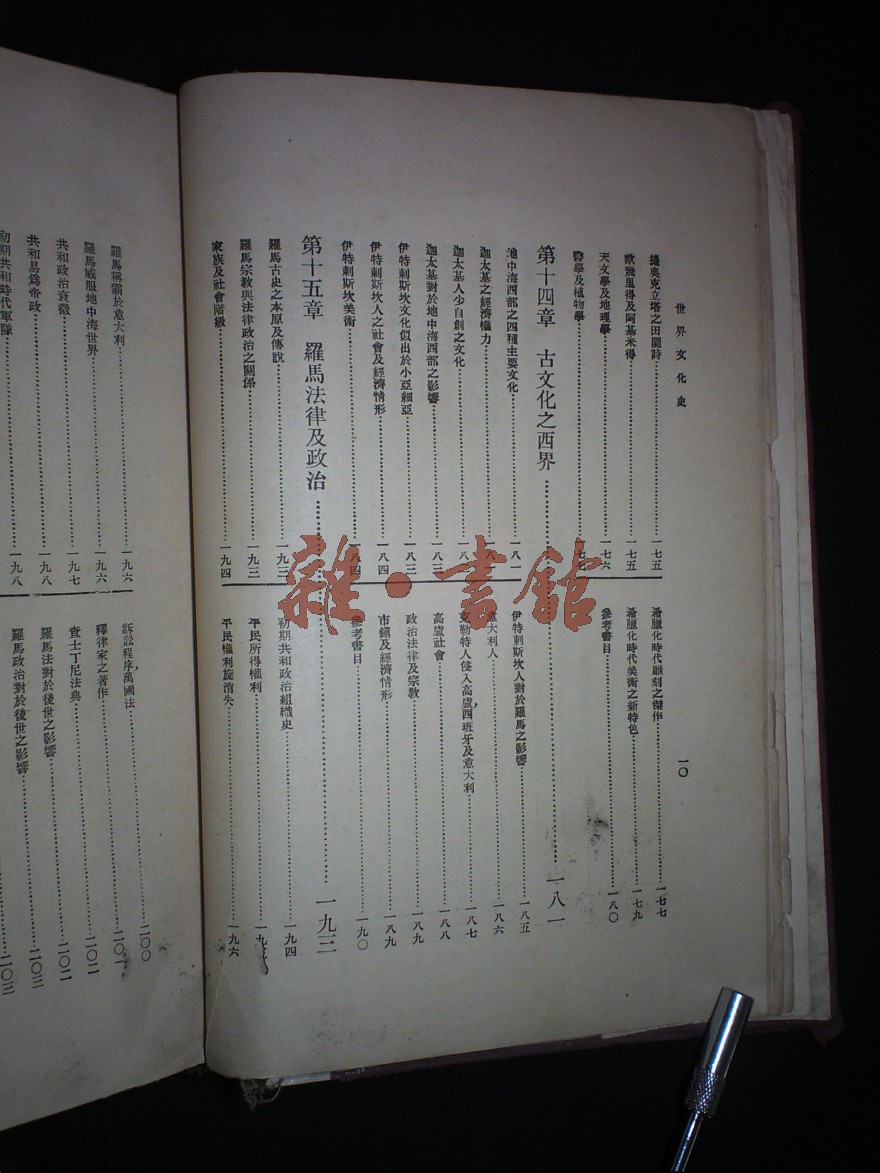 世界文化史
一〇
提奥克立塔之田園詩……一七五
歐幾里得及阿基米得……一七五
天文學及地理學……一七六
醫學及植物學……一七七
希臘化時代雕刻之傑作……一七七
希臘化時代美術之新特色……一七九
參考書目……一八〇
第十四章　古文化之西界……一八一
地中海西部之四種主要文化……一八一
迦太基之經濟權力……一八
迦太基人少自創之文化……一八
迦太基對於地中海西部之影響……一八三
伊特剌斯坎文化似出於小亞細亞……一八三
伊特剌斯坎人之社會及經濟情形……一八四
伊特剌斯坎美術……一八四
伊特剌斯坎人對於羅馬之影響……一八五
意大利人……一八六
克勒特人侵入高盧，西班牙及意大利……一八七
高盧社會……一八八
政治法律及宗教……一八九
市鎮及經濟情形……一八九
參考書目……一九〇
第十五章　羅馬法律及政治……一九三
羅馬古史之本原及傳說……一九三
羅馬宗教與法律政治之關係……一九三
家族及社會階級……一九四
初期共和政治組織史……一九四
平民所得權利……一九
平民權利旋消失……一九六
羅馬稱霸於意大利……一九六
羅馬威服地中海世界……一九六
共和政治衰微……一九七
共和易爲帝政……一九八
初期共和時代軍隊……一九八
訴訟程序，萬國法……二〇〇
釋律家之著作……二〇
查士丁尼法典……二〇二
羅馬法對於後世之影響……二〇三
羅馬政治對於後世之影響……二〇三
雜·書館